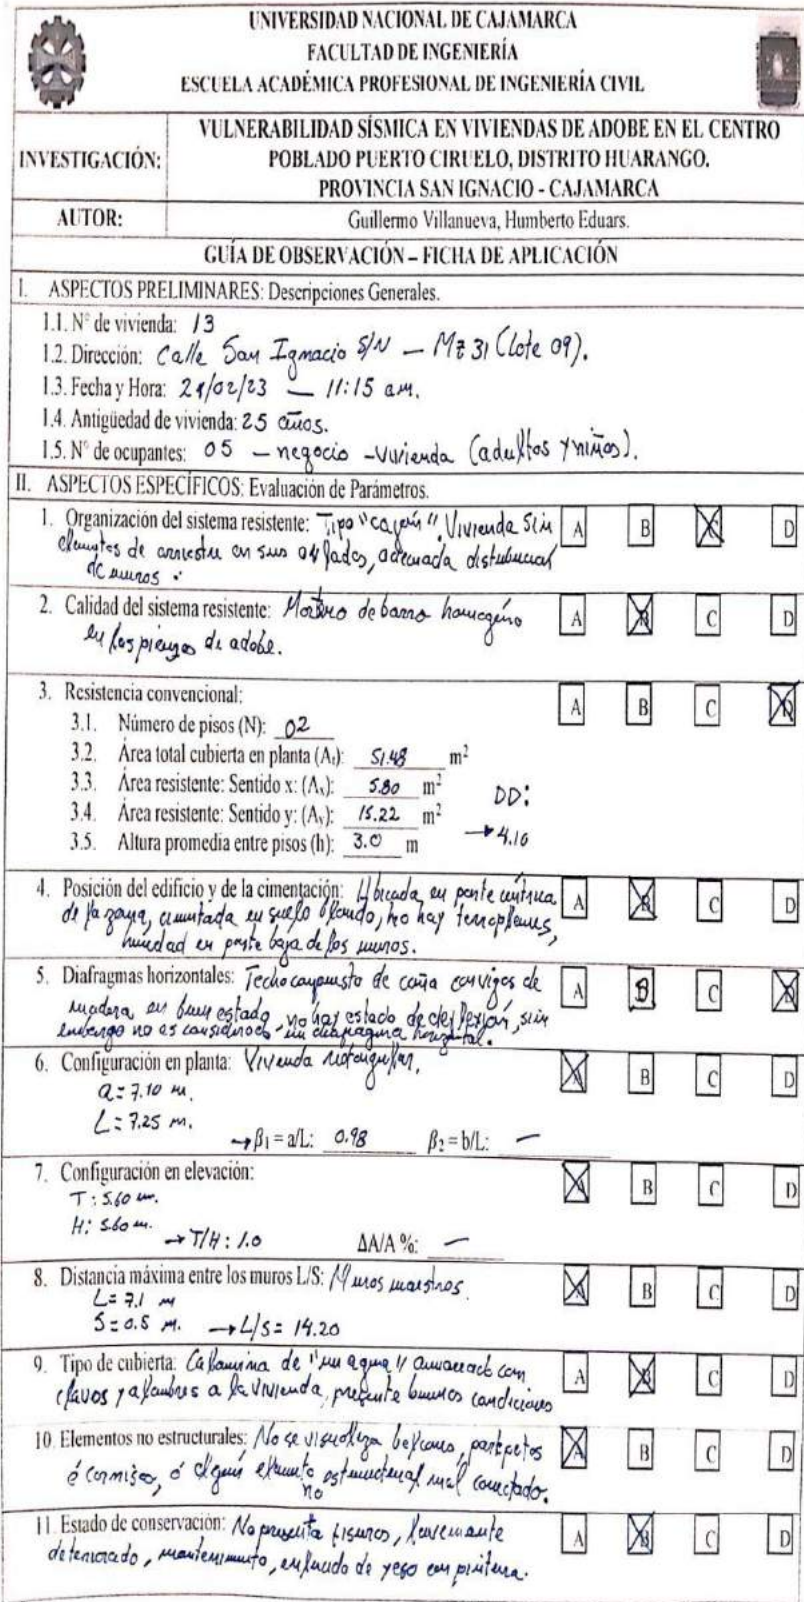 UNIVERSIDAD NACIONAL DE CAJAMARCA
FACULTAD DE INGENIERÍA
ESCUELA ACADÉMICA PROFESIONAL DE INGENIERÍA CIVIL
INVESTIGACIÓN:
VULNERABILIDAD SÍSMICA EN VIVIENDAS DE ADOBE EN EL CENTRO
POBLADO PUERTO CIRUELO, DISTRITO HUARANGO.
PROVINCIA SAN IGNACIO - CAJAMARCA
AUTOR: Guillermo Villanueva, Humberto Eduars.
GUÍA DE OBSERVACIÓN – FICHA DE APLICACIÓN
I. ASPECTOS PRELIMINARES: Descripciones Generales.
1.1. N° de vivienda: 13
1.2. Dirección: Calle San Ignacio S/N — Mz 31 (Lote 09).
1.3. Fecha y Hora: /02/23 — 11:15 am.
1.4. Antigüedad de vivienda: 25 años.
1.5. N° de ocupantes: 05 – negocio -vivienda (adultos y niños).
II. ASPECTOS ESPECÍFICOS: Evaluación de Parámetros.
1. Organización del sistema resistente: Tipo "cajón". Vivienda sin A B C D
de arriostre en sus , adecuada distribución
de muros.
2. Calidad del sistema resistente: Mortero de barro homogéno A B C D
en las piezas de adobe.
3. Resistencia convencional: A B C D
3.1. Número de pisos (N): 02
3.2. Área total cubierta en planta (At): 51.48 m²
3.3. Área resistente: Sentido x: (Ax): 5.80 m²
DD:
3.4. Área resistente: Sentido y: (Ay): 15.22 m²
→ 4.10
3.5. Altura promedia entre pisos (h): 3.0 m
4. Posición del edificio y de la cimentación: Ubicada en parte céntrica A B C D
de la zona, cimentada en suelo blando, no hay terraplenes,
humedad en parte baja de los muros.
5. Diafragmas horizontales: Techo compuesto de caña con vigas de A B C D
madera en buen estado, no hay estado de deflexión, sin
embargo no es considerado un diafragma horizontal.
6. Configuración en planta: Vivienda rectangular. A B C D
a = 7.10 m.
L = 7.25 m.
→ β1 = a/L: 0.98 β2 = b/L: —
7. Configuración en elevación: A B C D
T : 5.60 m.
H: 5.60 m.
→ T/H : 1.0 ΔA/A %: —
8. Distancia máxima entre los muros L/S: Muros maestros. A B C D
L = 7.1 m
S = 0.5 m. → L/S = 14.20
9. Tipo de cubierta: Calamina de "un agua" amarrado con A B C D
clavos y alambres a la vivienda, presente buenas condiciones
10. Elementos no estructurales: No se visualiza balcones, parapetos A B C D
ó cornisas, ó algún elemento no estructural mal conectado.
11. Estado de conservación: No presenta fisuras, levemente A B C D
deteriorado, mantenimiento, enlucido de yeso con pintura.